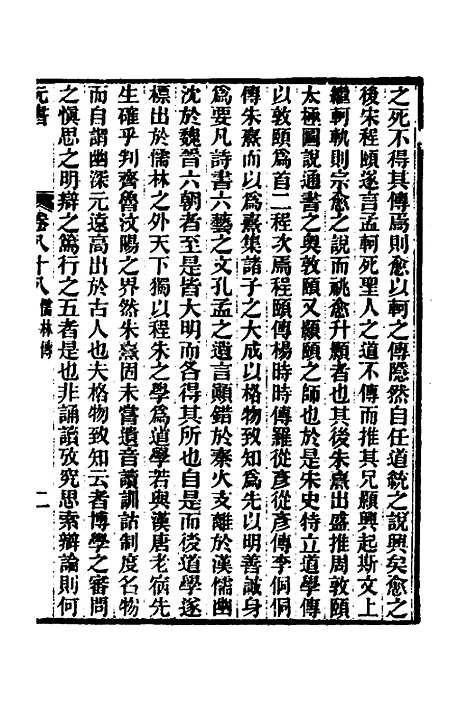 之死不得其傳焉則愈以軻之傳隱然自任道統之說興矣愈之
後宋程頤遂言孟軻死聖人之道不傳而推其兄顥興起斯文上
繼軻軌則宗愈之說而祧愈升顥者也其後朱熹出盛推周敦頤
太極圖說通書之奧敦頤又顥頤之師也於是宋史特立道學傳
以敦頤爲首二程次焉程頤傳楊時時傳羅從彥從彥傳李侗侗
傳朱熹而以熹集諸子之大成以格物致知爲先以明善誠身
爲要凡詩書六藝之文孔孟之遺言顚錯於秦火支離於漢儒幽
沈於魏晉六朝者至是皆大明而各得其所也自是而後道學遂
標出於儒林之外天下獨以程朱之學爲道學若與漢唐老宿先
生確乎判齊魯汶陽之界然朱熹固未嘗遺音讀訓詁制度名物
而自謂幽深元遠高出於古人也夫格物致知云者博學之審問
之愼思之明辯之篤行之五者是也非誦讀攷究思索辯論則何
元書
卷八十八
儒林傳
二